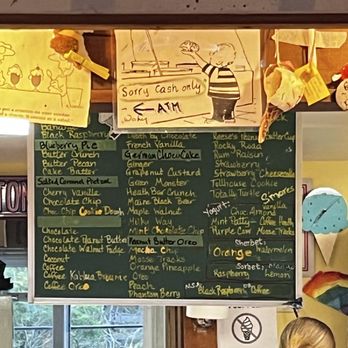 Sorry Cash only
← ATM
Black Raspberry
Blueberry Pie
Butter Crunch
Butter Pecan
Cake Batter
Salted Caramel Pretzel
Cherry Vanilla
Chocolate Chip
Choc Chip Cookie Dough
Chocolate
Chocolate Peanut Butter
Chocolate Walnut Fudge
Coconut
Coffee
Coffee Kahlua Brownie
Coffee Oreo
Death by Chocolate
French Vanilla
German Choc Cake
Ginger
Grapenut Custard
Green Monster
Heath Bar Crunch
Maine Black Bear
Maple Walnut
Milky Way
Mint Chocolate Chip
Peanut Butter Oreo
Mocha Chip
Moose Tracks
Orange Pineapple
Oreo
Peach
Phantom Berry
Reese's Peanut Butter Cup
Rocky Road
Rum Raisin
Strawberry
Strawberry Cheesecake
Tollhouse Cookie
Totally Turtle
S'mores
Yogurt:
Vanilla
Choc Almond
Mint Patty
Coffee
Purple Cow
Moose Tracks
Sherbet:
Orange
Watermelon
Sorbet:
Raspberry
Lemon
N.S.A.
Black Raspberry
Coffee